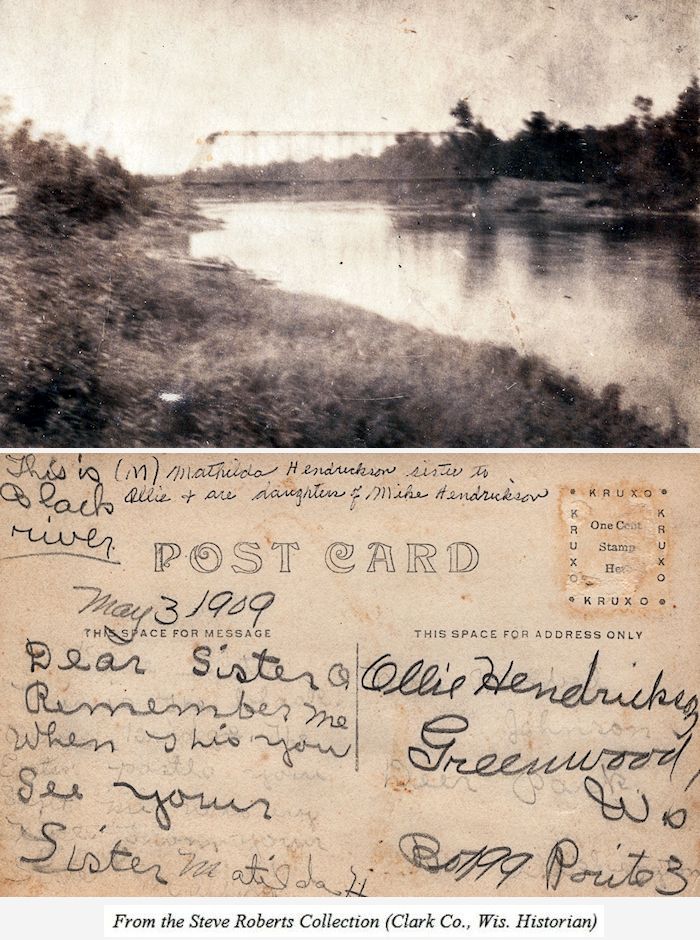 This is
Black
river
(M) Mathilda Hendrickson sister to
Ollie + are daughters of Mike Hendrickson
POST CARD
KRUXO
KRUXO
One Cent
Stamp
Here
KRUXO
KRUXO
May 3 1909
THIS SPACE FOR MESSAGE
Dear Sister O
Remember me
When this you
See your
Sister Matilda H
THIS SPACE FOR ADDRESS ONLY
Ollie Hendrickson
Greenwood
Wis
Box 99 Route 3
From the Steve Roberts Collection (Clark Co., Wis. Historian)